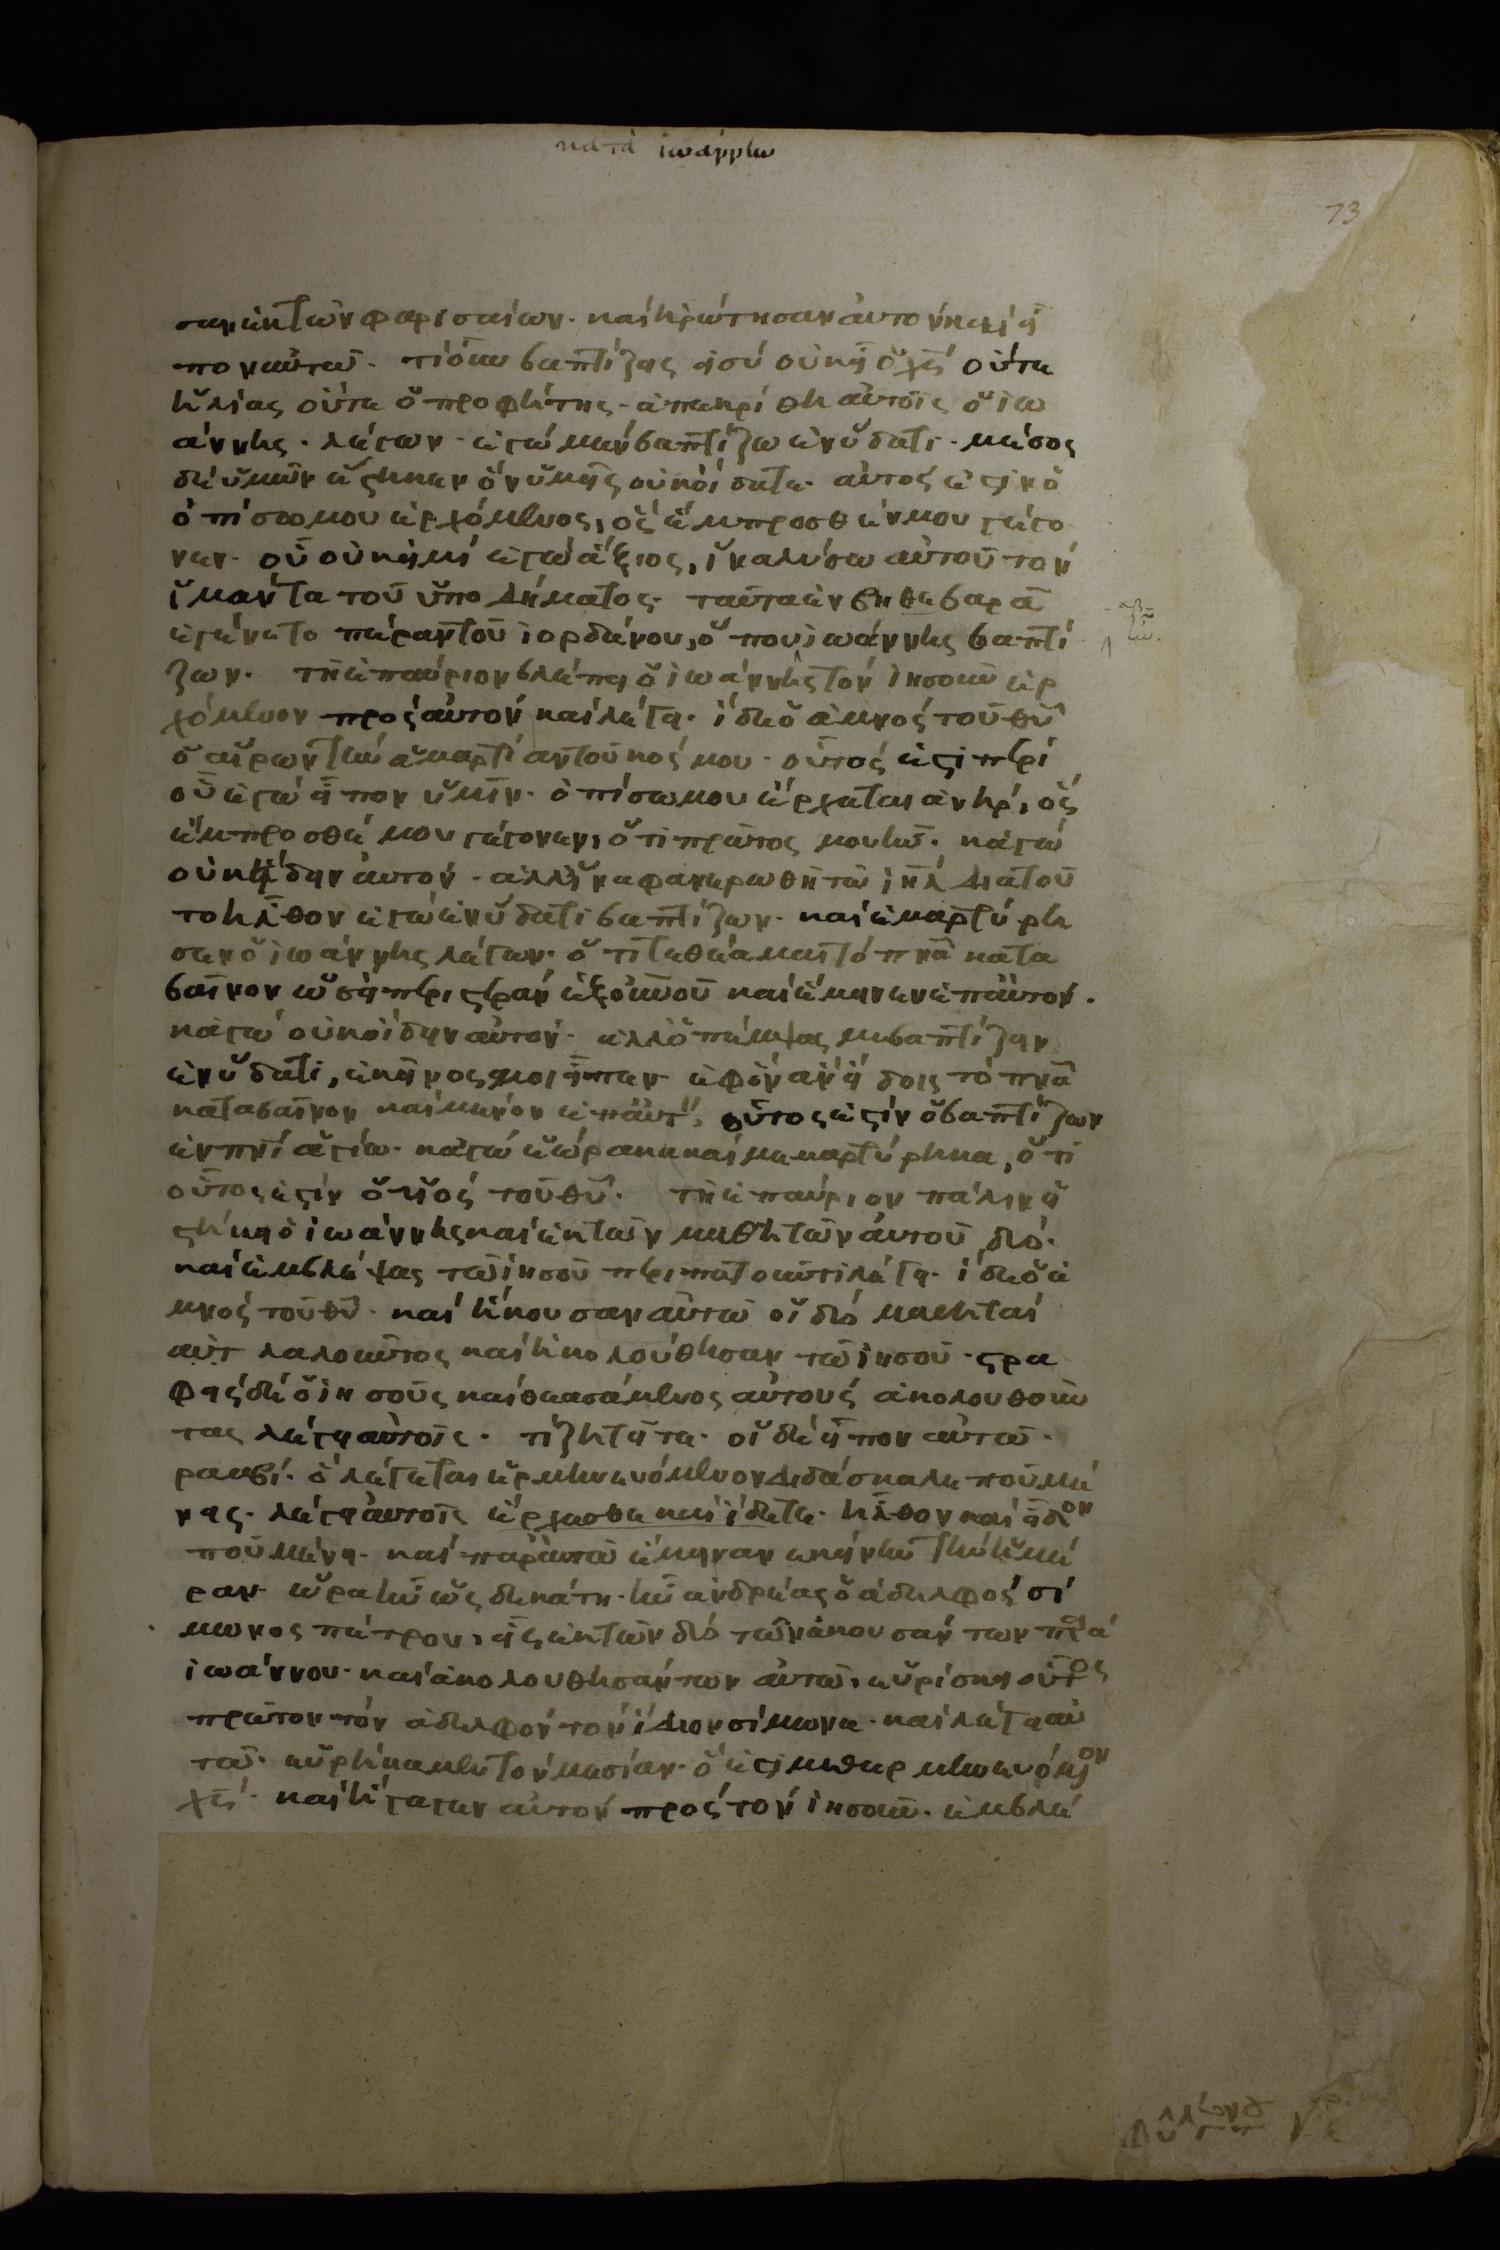 κατὰ ἰωάννην
73
σαν ἐκ τῶν φαρισαίων· καὶ ἠρώτησαν αὐτὸν καὶ εἶ
πον αὐτῶ· τί οὖν βαπτίζεις εἰ σὺ οὐκ εἶ ὁ χς οὔτε
ἠλίας οὔτε ὁ προφήτης· ἀπεκρίθη αὐτοῖς ὁ ἰω
άννης· λέγων· ἐγὼ μὲν βαπτίζω ἐν ὕδατι· μέσος
δὲ ὑμῶν ἕστηκεν ὃν ὑμεῖς οὐκ οἴδατε· αὐτός ἐστιν ὁ
ὀπίσσω μου ἐρχόμενος, ὃς ἔμπροσθέν μου γέγο
νεν· οὗ οὐκ εἰμὶ ἐγὼ ἄξιος, ἵνα λύσω αὐτοῦ τὸν
ἱμάντα τοῦ ὑποδήματος· ταῦτα ἐν βηθεβαρᾶ
ἐγένετο πέραν τοῦ ἰορδάνου, ὅπου ἰωάννης βαπτί
ζων· τῆ ἐπαύριον βλέπει ὁ ἰωάννης τὸν ἰησοῦν ἐρ
χόμενον πρὸς αὐτὸν καὶ λέγει· ἴδε ὁ ἀμνὸς τοῦ θυ
ὁ αἴρων τὴν ἁμαρτίαν τοῦ κόσμου· οὗτός ἐστι περὶ
οὗ ἐγὼ εἶπον ὑμῖν· ὀπίσω μου ἔρχεται ἀνὴρ, ὃς
ἔμπροσθέ μου γέγονεν, ὅτι πρῶτος μου ἦν· κἀγὼ
οὐκ ἤδειν αὐτόν· ἀλλ' ἵνα φανερωθῆ τῶ ἰηλ διὰ τοῦ
το ἦλθον ἐγὼ ἐν ὕδατι βαπτίζων· καὶ ἐμαρτύρη
σεν ὁ ἰωάννης λέγων· ὅτι τεθέαμαι τὸ πνα κατα
βαῖνον ὡσεὶ περιστερὰν ἐξ οὐνοῦ καὶ ἔμεινεν ἐπ' αὐτόν·
κἀγὼ οὐκ οἴδειν αὐτόν· ἀλλ' ὁ πέμψας με βαπτίζειν
ἐν ὕδατι, ἐκεῖνος μοι εἶπεν· ἐφ' ὃν ἂν εἴδοις τὸ πνα
καταβαῖνον καὶ μένον ἐπ' αὐτ, οὗτος ἐστὶν ὁ βαπτίζων
ἐν πνι ἁγίω· κἀγὼ ἑώρακα καὶ μεμαρτύρηκα, ὅτι
οὗτος ἐστὶν ὁ υἱὸς τοῦ θυ· τῆ ἐπαύριον πάλιν εἱ
στήκει ὁ ἰωάννης καὶ ἐκ τῶν μαθητῶν αὐτοῦ δύο·
καὶ ἐμβλέψας τῶ ἰησοῦ περιπατοῦντι λέγει· ἴδε ὁ ἀ
μνὸς τοῦ θυ· καὶ ἤκουσαν αὐτῶ οἱ δύο μαθηταὶ
αὐτ λαλοῦντος καὶ ἠκολούθησαν τῶ ἰησοῦ· στρα
φεὶς δὲ ὁ ἰησοῦς καὶ θεασάμενος αὐτοὺς ἀκολουθοῦν
τας λέγει αὐτοῖς· τί ζητεῖτε· οἱ δὲ εἶπον αὐτῶ·
ραββί· ὃ λέγεται ἑρμηνευόμενον διδάσκαλε ποῦ μέ
νεις· λέγει αὐτοῖς ἔρχεσθε καὶ ἴδετε· ἦλθον καὶ εἶδον
ποῦ μένει· καὶ παρ' αὐτῶ ἔμειναν ἐκείνην τὴν ἡμέ
ραν· ὥρα ἦν ὡς δεκάτη· ἦν ἀνδρέας ὁ ἀδελφὸς σί
μωνος πέτρου, εἷς ἐκ τῶν δύο τῶν ἀκουσάντων παρὰ
ἰωάννου· καὶ ἀκολουθησάντων αὐτῶ, εὑρίσκει οὗτος
πρῶτον τὸν ἀδελφὸν τὸν ἴδιον σίμωνα· καὶ λέγει αὐ
τῶ· εὑρήκαμεν τὸν μεσίαν· ὅ ἐστι μεθερμηνευόμενον
χς· καὶ ἤγαγεν αὐτὸν πρὸς τὸν ἰησοῦν· ἐμβλέ